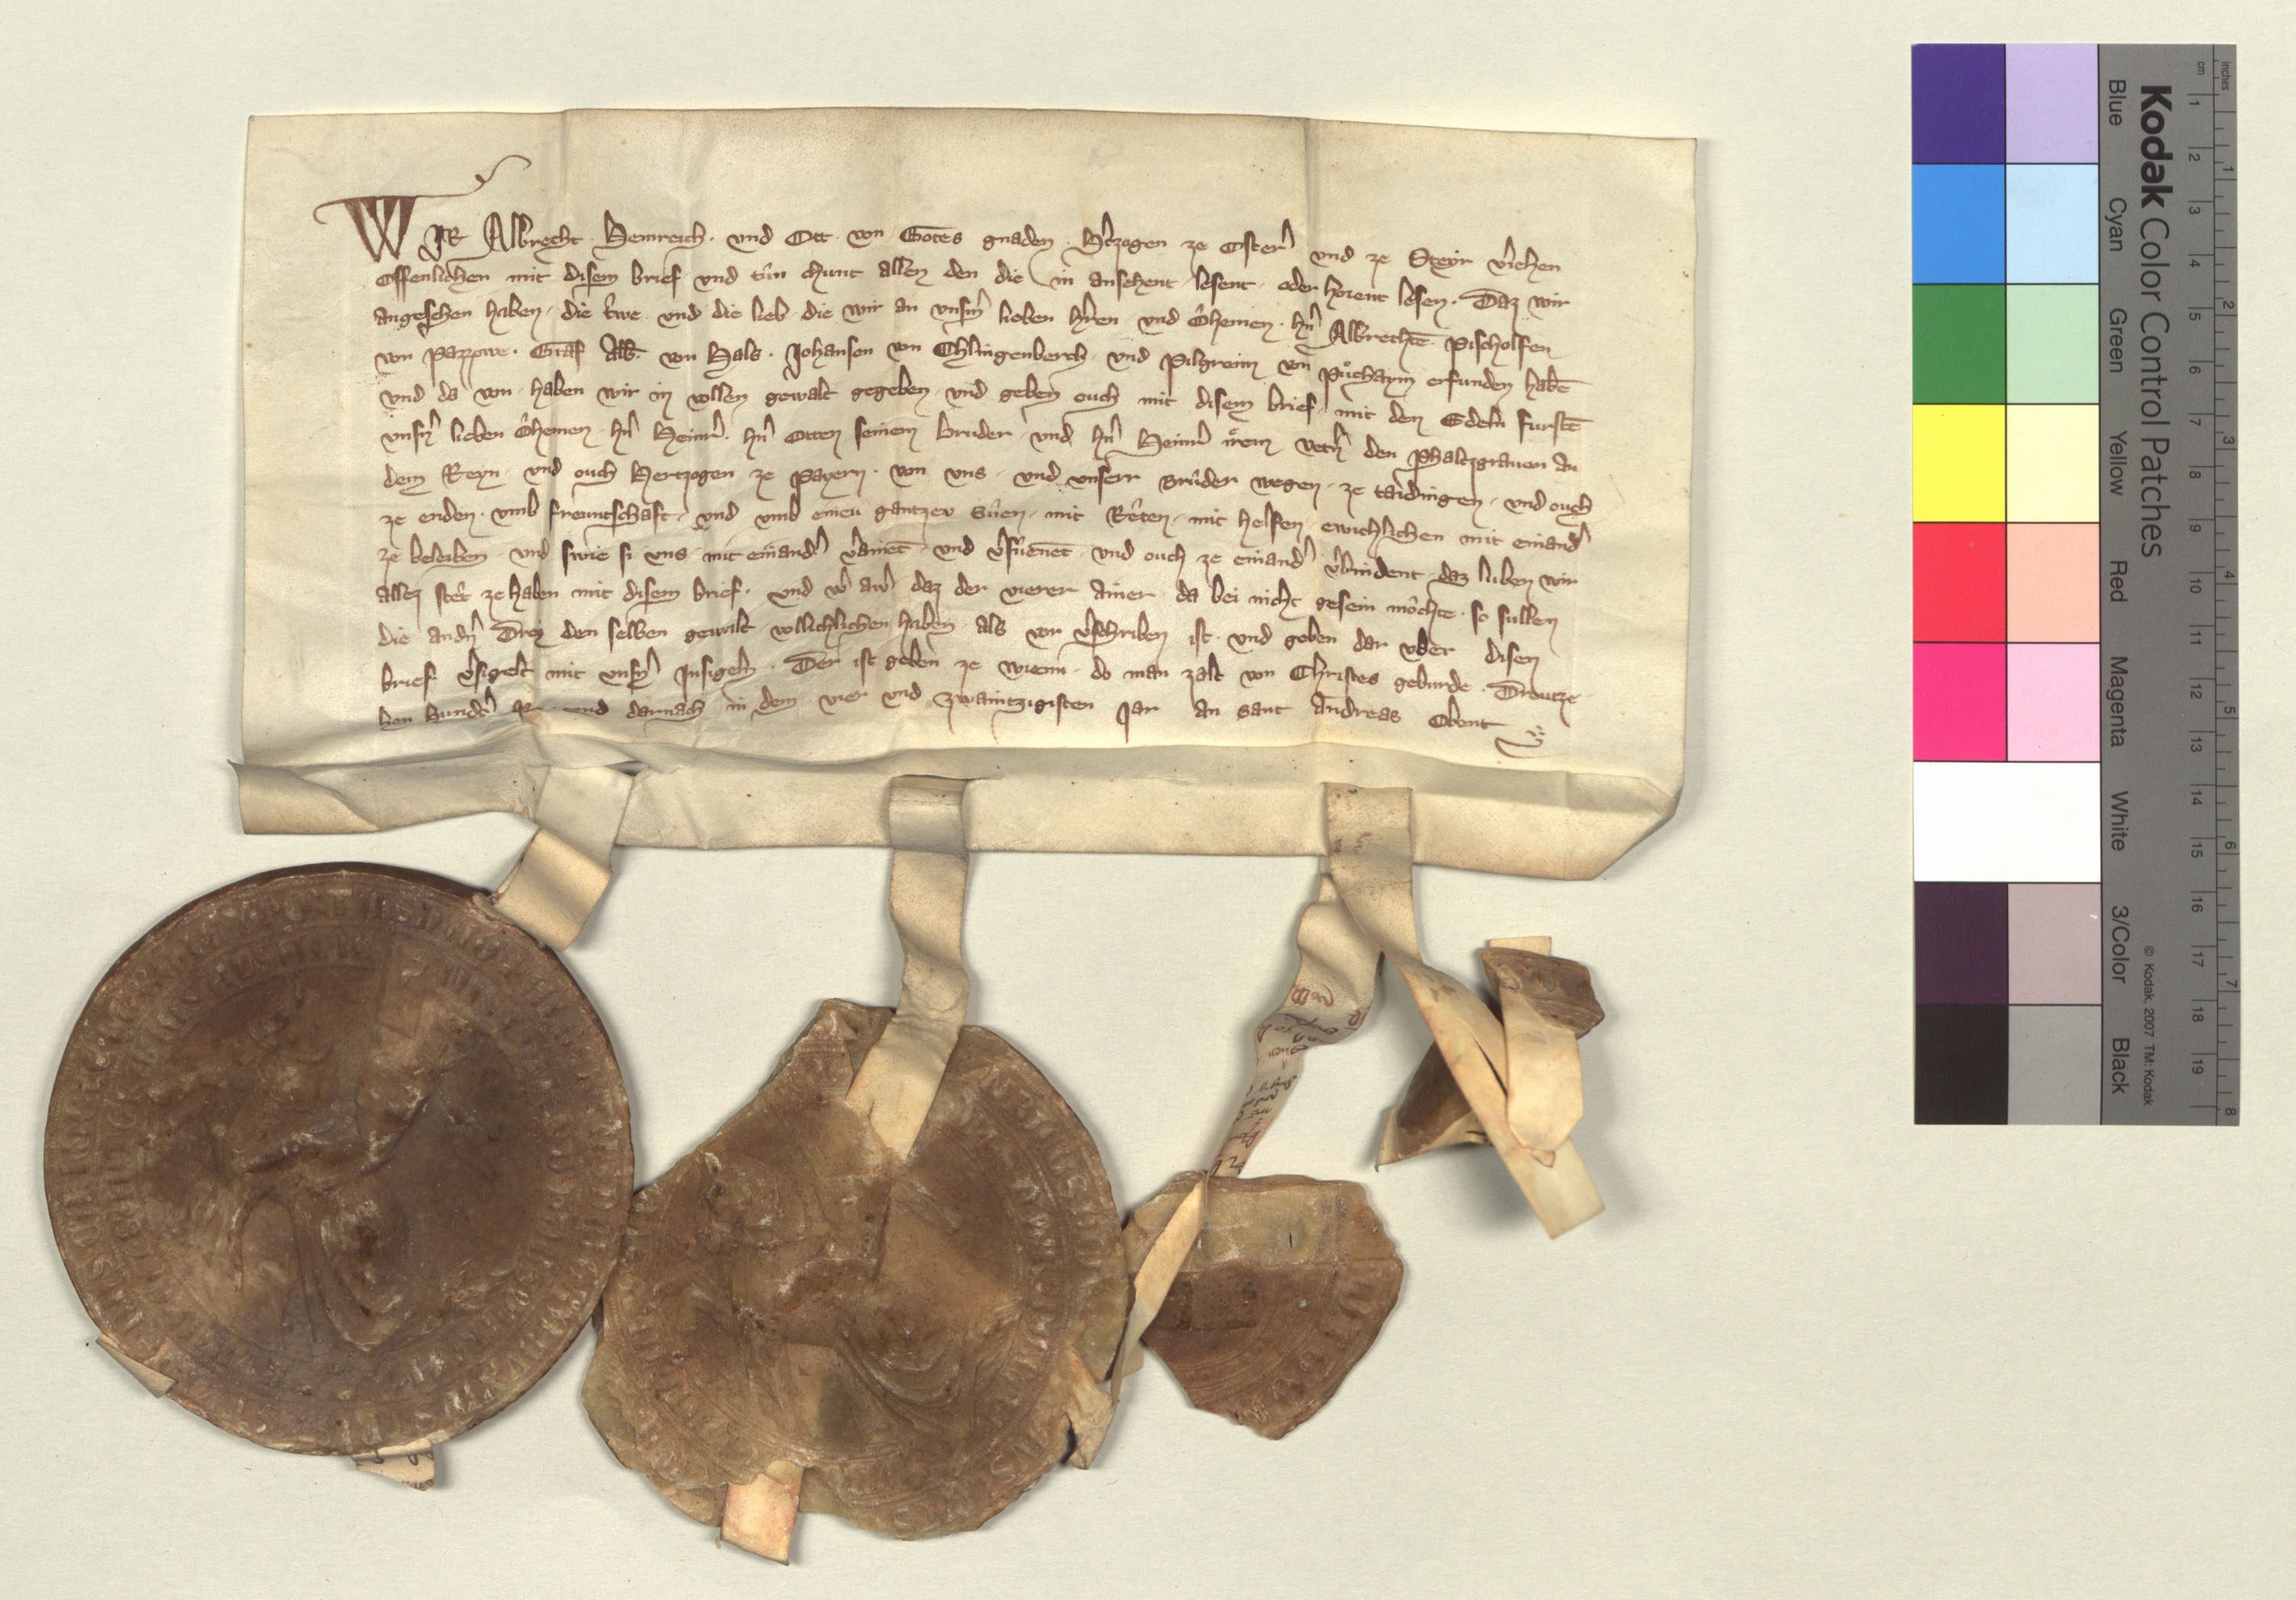 WJR Albrecht · Heinreich · und Ott · von Gotes gnaden · H̾tzogen ze Oster̾ und ze Steyr v̾iehen
offenlichen mit disem brief und tûn chunt allen den die in ansehent lesent · oder horent lesen · Daz wir
angesehen haben · die trwe und die lieb die wir an unsm̾ lieben h̾ren und Ôhemen · hn̾ Albrechtē Pischolfen
von Pazzowe · Graf Alb̄ · von Hals · Johansen von Chlingenberch · und Pilgreim von Půchaym erfunden habē
und da von haben wir in vollen gewalt gegeben und geben ouch mit disem brief · mit den Edeln furstē
unsn̾ lieben Ôhemen · hn̾ Heinr̾ · hn̾ Otten seinem bruder · und hn̾ Heinr̾ irem vetn̾ den Phaltzgraven an
dem Reyn · und ouch Hertzogen ze Payern · von uns · und unserr brûder wegen · ze taidingen · und ouch
ze enden · umb freuntschaft · und umb einen gantzen sûen · mit Rêten · mit helfen · ewichlichen mit einand̾
ze beleiben · und swie si uns mit einand̾ v̾ainēt · und v̾sûenēt · und ouch ze einand̾ v̾bindent daz luben wir
allez stêt ze haben mit disem brief · und w̾ aw̾ daz der vierer ainer da bei nicht gesein môchte · so sullen
die andn̾ Drei den selben gewalt vollichlichen haben als vor v̾schriben ist · und geben dar uber disen
brief v̾sigelt mit unsn̾ Insigeln · Der ist geben ze wienn · do man zalt von Christes geburde · Dreutze
hen hundt̾ Jar und darnach in dem vier und zwaintzigisten Jar an sant Andreas Obent
Kodak Color Control Patches
Blue Cyan Green Yellow Red Magenta White 3/Color Black
© Kodak, 2007 TM: Kodak
cm 1 2 3 4 5 6 7 8 9 10 11 12 13 14 15 16 17 18 19
inches 1 2 3 4 5 6 7 8